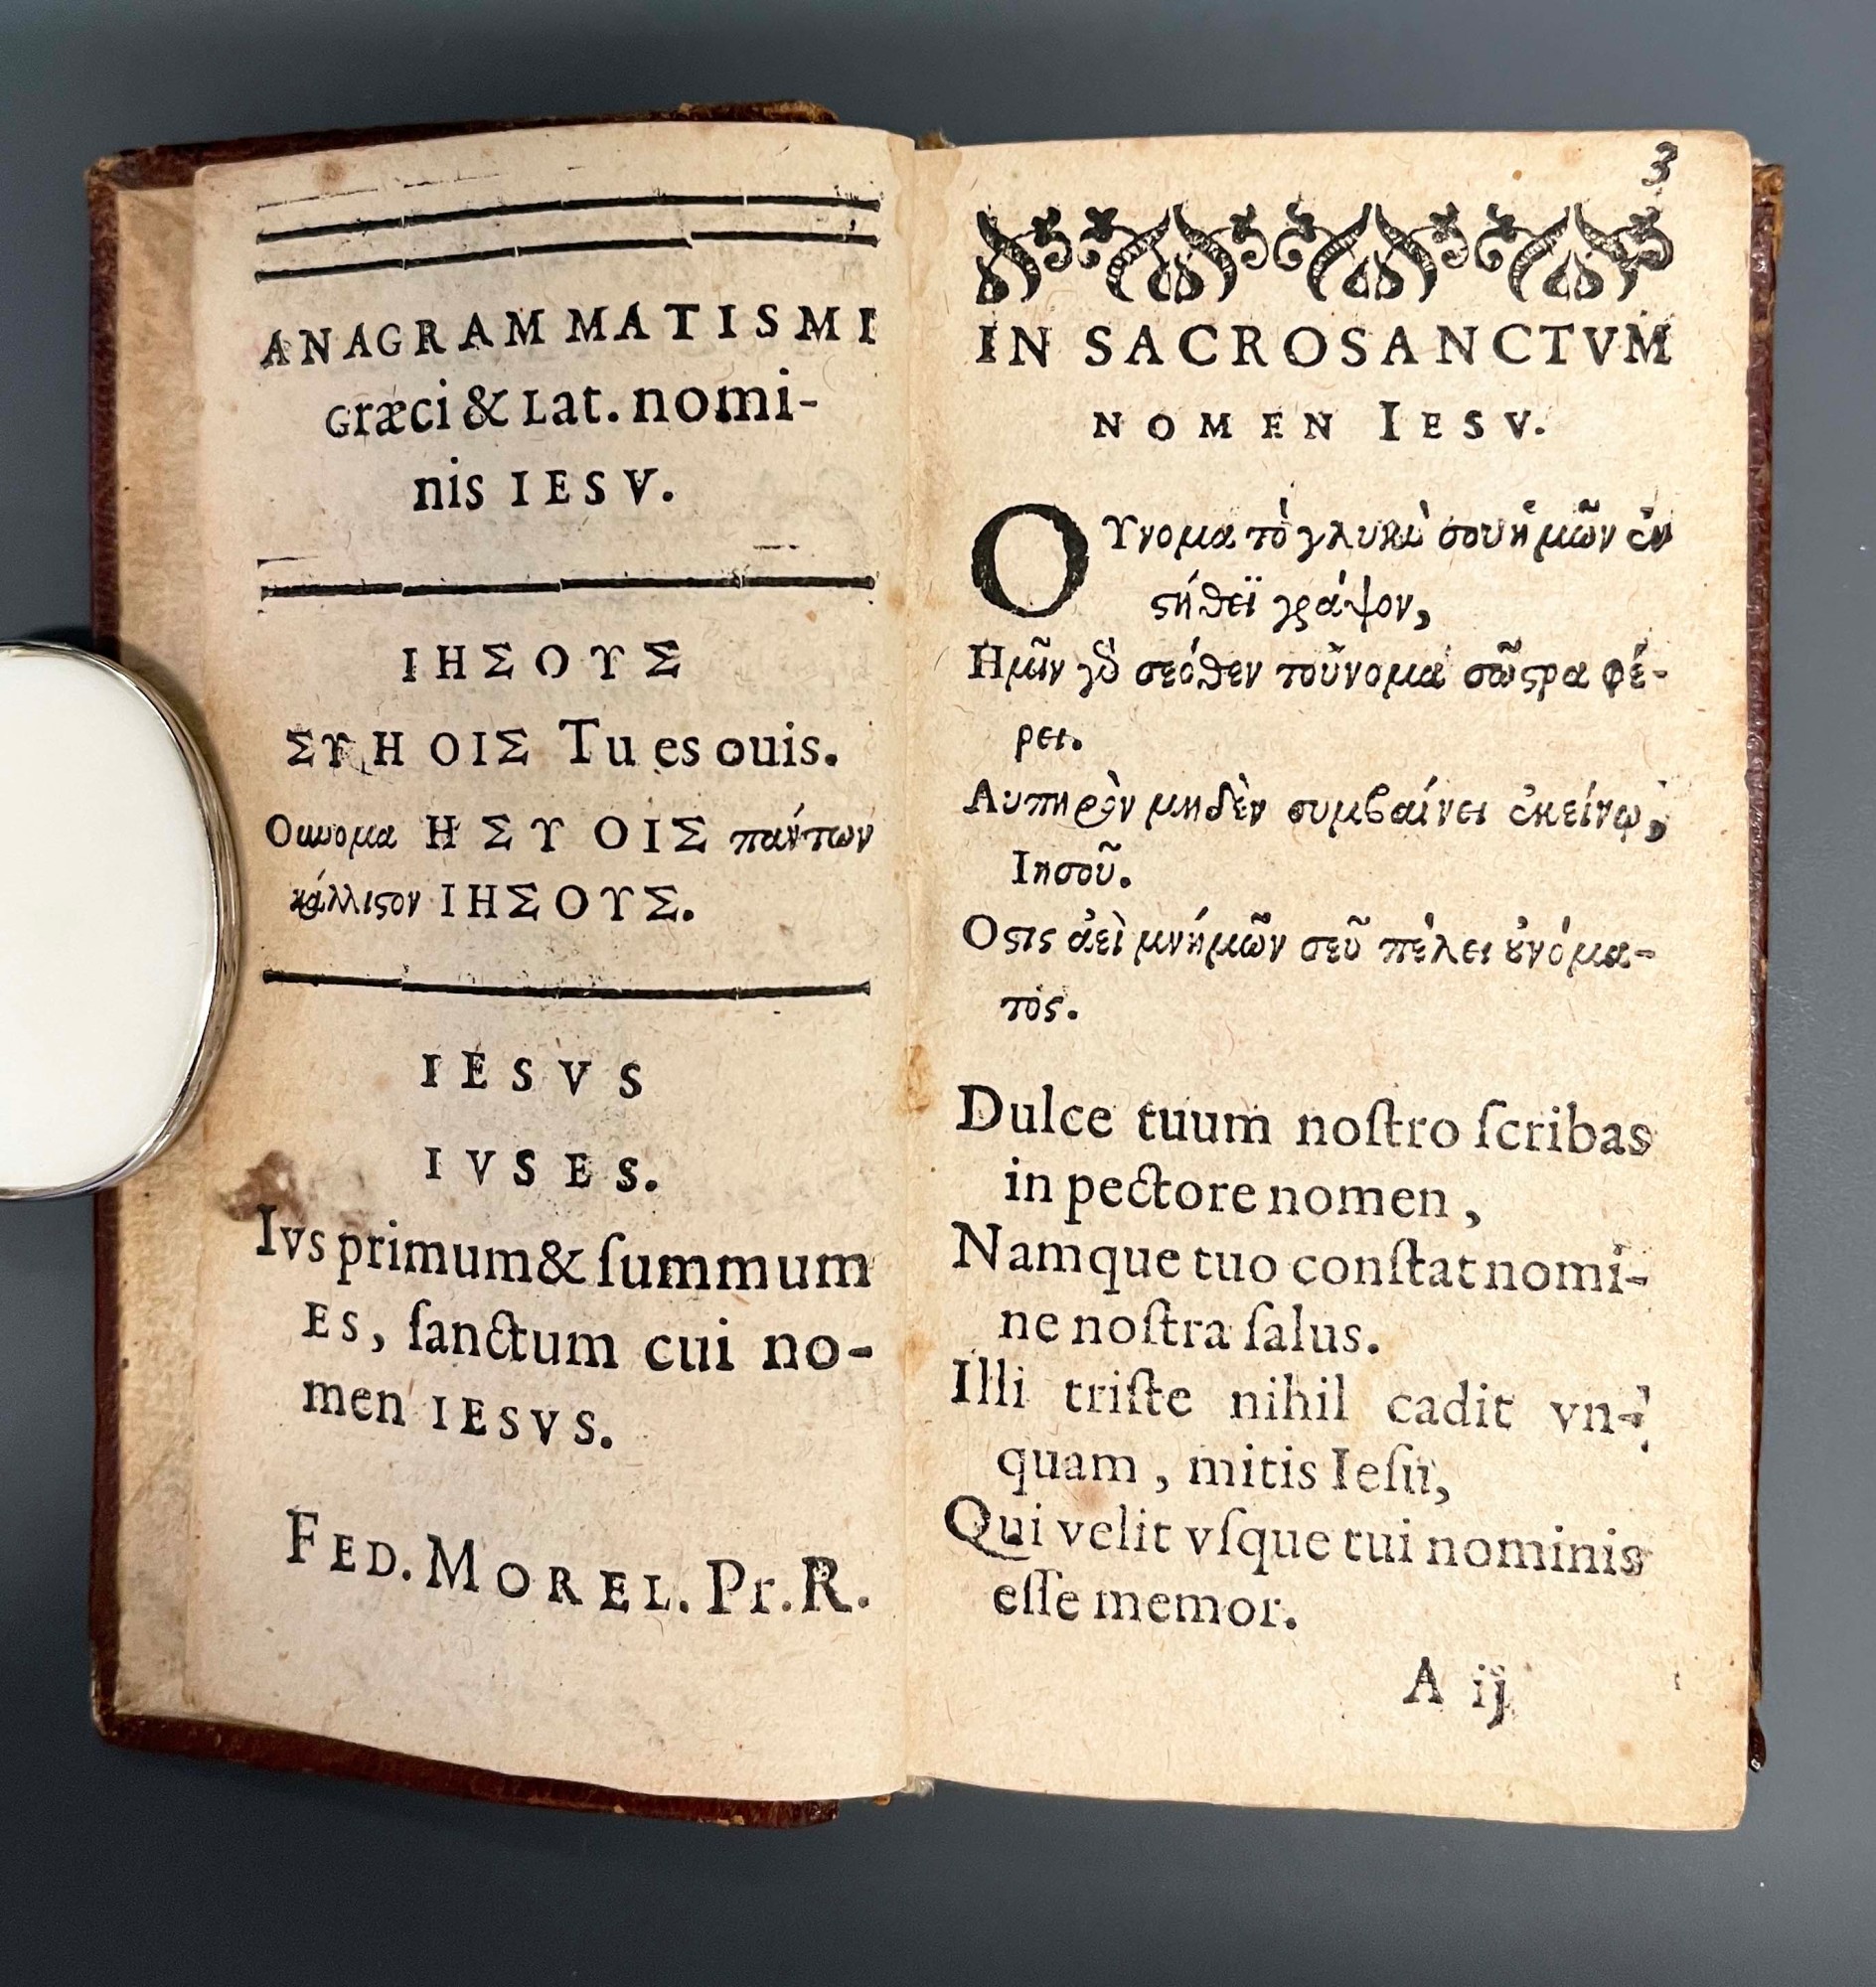 ANAGRAMMATISMI
Græci & Lat. nomi-
nis IESV.
ΙΗΣΟΥΣ
ΣΥ Η ΟΙΣ Tu es ouis.
Οὔνομα Η ΣΥ ΟΙΣ πάντων
κάλλιϛον ΙΗΣΟΥΣ.
IESVS
IVS ES.
Ivs primum & ſummum
Es, ſanctum cui no-
men IESVS.
FED. MOREL. Pr. R.
3
IN SACROSANCTVM
NOMEN IESV.
ΟΥνομα τὸ γλυκὺ σου ἡμῶν ἐν
ϛήθεϊ γράψον,
Ημῖν γὸ σεόθεν τοὔνομα σῶϛρα φέ-
ρει.
Λυπηρὸν μηδὲν συμβαίνει ἐκείνῳ,
Ιησοῦ.
Οϛις ἀεὶ μνήμων σεῦ πέλει ȣνόμα-
τός.
Dulce tuum noſtro ſcribas
in pectore nomen,
Namque tuo conſtat nomi-
ne noſtra ſalus.
Illi triſte nihil cadit vn-
quam, mitis Ieſu,
Qui velit vſque tui nominis
eſſe memor.
A ij